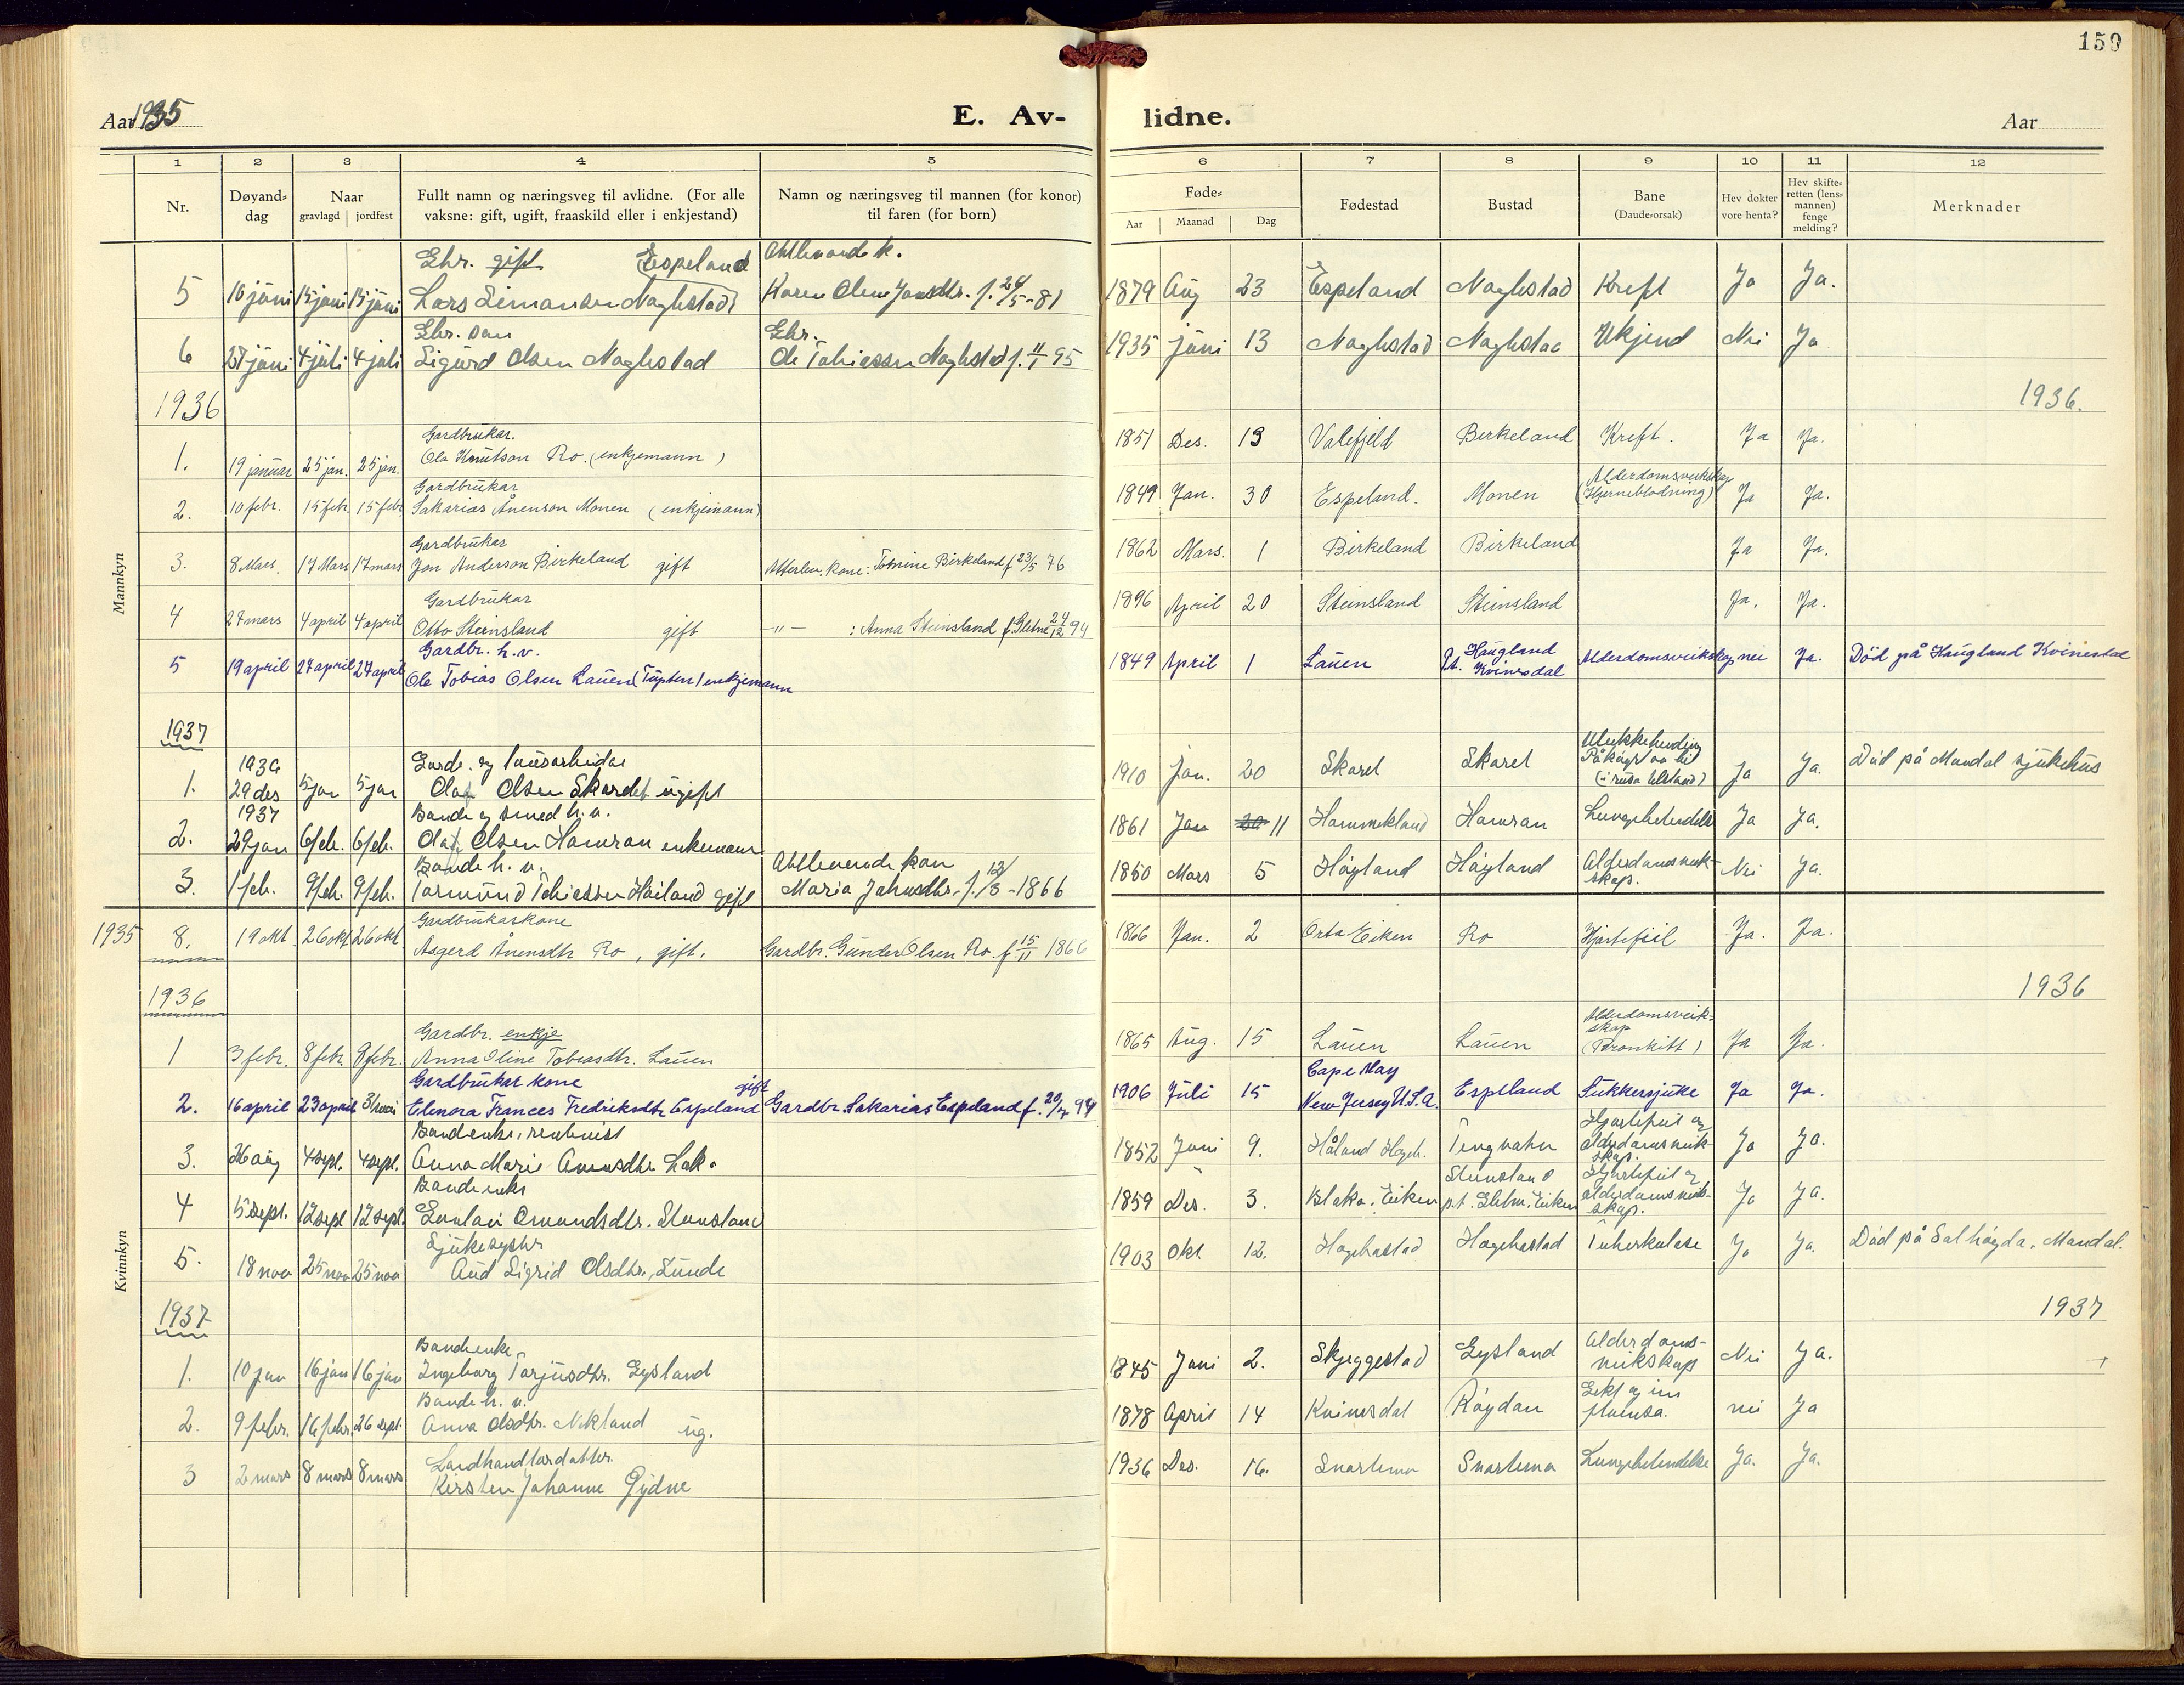 159
Aar 1935
E. Av-
lidne.
Aar
1 2 3 4 5 6 7 8 9 10 11 12
Nr.
Døyand-
dag
Naar
gravlagd jordfest
Fullt namn og næringsveg til avlidne. (For alle
vaksne: gift, ugift, fraaskild eller i enkjestand)
Namn og næringsveg til mannen (for konor)
til faren (for born)
Føde-
Aar Maanad Dag
Fødestad
Bustad
Bane
(Daude-orsak)
Hev dokter
vore henta?
Hev skifte-
retten (lens-
mannen)
fenge
melding?
Merknader
Mannkyn
Gbr. gift Espeland
5 10 júni 15 júni 15 júni Lars Simonsen Naglestad Karen Oline Jonsdtr. f. 24/5-81 1879 Aug 23 Espeland Naglestad Kreft Ja Ja.
Gbr. son Gbr.
6 27 júni 4 júli 4 júli Sigurd Olsen Naglestad Ole Tobiassen Naglestad f. 11/1 95 1935 júni 13 Naglestad Naglestad Ukjend Nei Ja
1936 1936.
Gardbrukar.
1. 19 januar 25 jan. 25 jan. Ola Knutson Ro. (enkjemann) 1851 Des. 19 Valefjeld Birkeland Kreft. Ja Ja.
Gardbrukar Alderdomsveikskap
2. 10 febr. 15 febr. 15 febr. Sakarias Ånenson Monen (enkjemann) 1849 Jan. 30 Espeland. Monen (Hjerneblødning) Ja Ja.
Gardbrukar
3. 8 Mars. 17 Mars 17 mars Jon Anderson Birkeland gift Atterlev. kone: Tomine Birkeland f 23/5 76 1862 Mars. 1 Birkeland Birkeland Ja Ja.
Gardbrukar
4 27 mars 4 april 4 april Otto Steinsland gift -"- : Anna Steinsland f. Sletne 24/12 94 1896 April 20 Steinsland Steinsland Ja. Ja.
Gardbr. h.v. Haugland
5 19 april 27 april 27 april Ole Tobias Olsen Lauen (Tupten) enkjemann 1849 April 1 Lauen Pt. Kvinesdal Alderdomsveikskap nei Ja. Død på Haugland Kvinesdal
1937
1936 Gards- og lausarbeidar Ulukkehending
1. 29 des 5 jan 5 jan Olaf Olsen Skardet ugift 1910 Jan. 20 Skaret Skaret Påkøyrt av bil Ja Ja. Død på Mandal sjukehus
1937 Bonde og smed h.v.
2. 29 jan 6 feb. 6 feb. Olaf Olsen Homran enkemann 1861 Jan 30 11 Hommekland Homran Lungebetendelse Ja Ja.
Bonde h. v. Attlevende kon
3. 1 feb. 9 feb. 9 feb. Tormund Tobiassen Høiland gift Maria Johnsdtr. f. 12/3-1866 1850 Mars 5 Høyland Høyland Alderdomsveik-
skap. Nei Ja.
Kvinnkyn
Gardbrukarkone
1935 8. 19 okt. 26 okt 26 okt Asgerd Ånensdtr Ro, gift. Gardbr. Gunder Olsen Ro. f 15/11 1866 1866 Jan. 2 Orta Eiken Ro Hjartefeil Ja. Ja.
1936 1936
Gardbr. enkje Alderdomsveik-
skap
1 3 febr. 8 febr. 8 febr. Anna Oline Tobiasdtr. Lauen 1865 Aug. 15 Lauen Lauen (Bronkitt) Ja Ja.
Gardbrukar kone gift Cape May
2. 16 april 23 april 3 mai Elenora Frances Fredriksdtr Espeland Gardbr. Sakarias Espeland f. 20/7 94 1906 Juli 15 New Jersey U.S.A. Espeland Sukkersjuke Ja Ja.
Bondeenke, Hjartefeil og
3. 26 aug 4 sept. 4 sept. Anna Marie Ånensdtr. 1852 Juni 9. Håland Hægeb. Tingvatn alderdomsveik-
skap. Ja Ja.
Bondeenke Steinsland Hjartefeil og
4 5 sept. 12 sept 12 sept. Omundsdtr. Steinsland 1859 Des. 3. Blaka, Eiken p.t. Sletn. Eiken alderdomsveik-
skap. Ja Ja.
Sjukesyster
5. 18 nov 25 nov 25 nov Aud Sigrid Olsdtr. Lunde 1903 Okt. 12. Hægebostad Hægebostad Tuberkulose Ja Ja. Død på Solhøgda, Mandal.
1937 1937
Bondeenke Alderdoms-
1. 10 jan 16 jan 16 jan Ingeborg Torjusdtr. Eysland 1845 Juni 2. Skjeggestad Eysland veikskap Nei Ja.
Bonde h. v.
2. 9 febr. 16 febr. 26 sept. Anna Olsdtr. ug. 1878 April 14 Kvinesdal Røydan Gikt og nei Ja
Landhandlardatter.
3 2 mars 8 mars 8 mars Kirsten Johanne Gydne 1936 Des. 16. Snartemo Snartemo Lungebetendelse Ja. Ja.